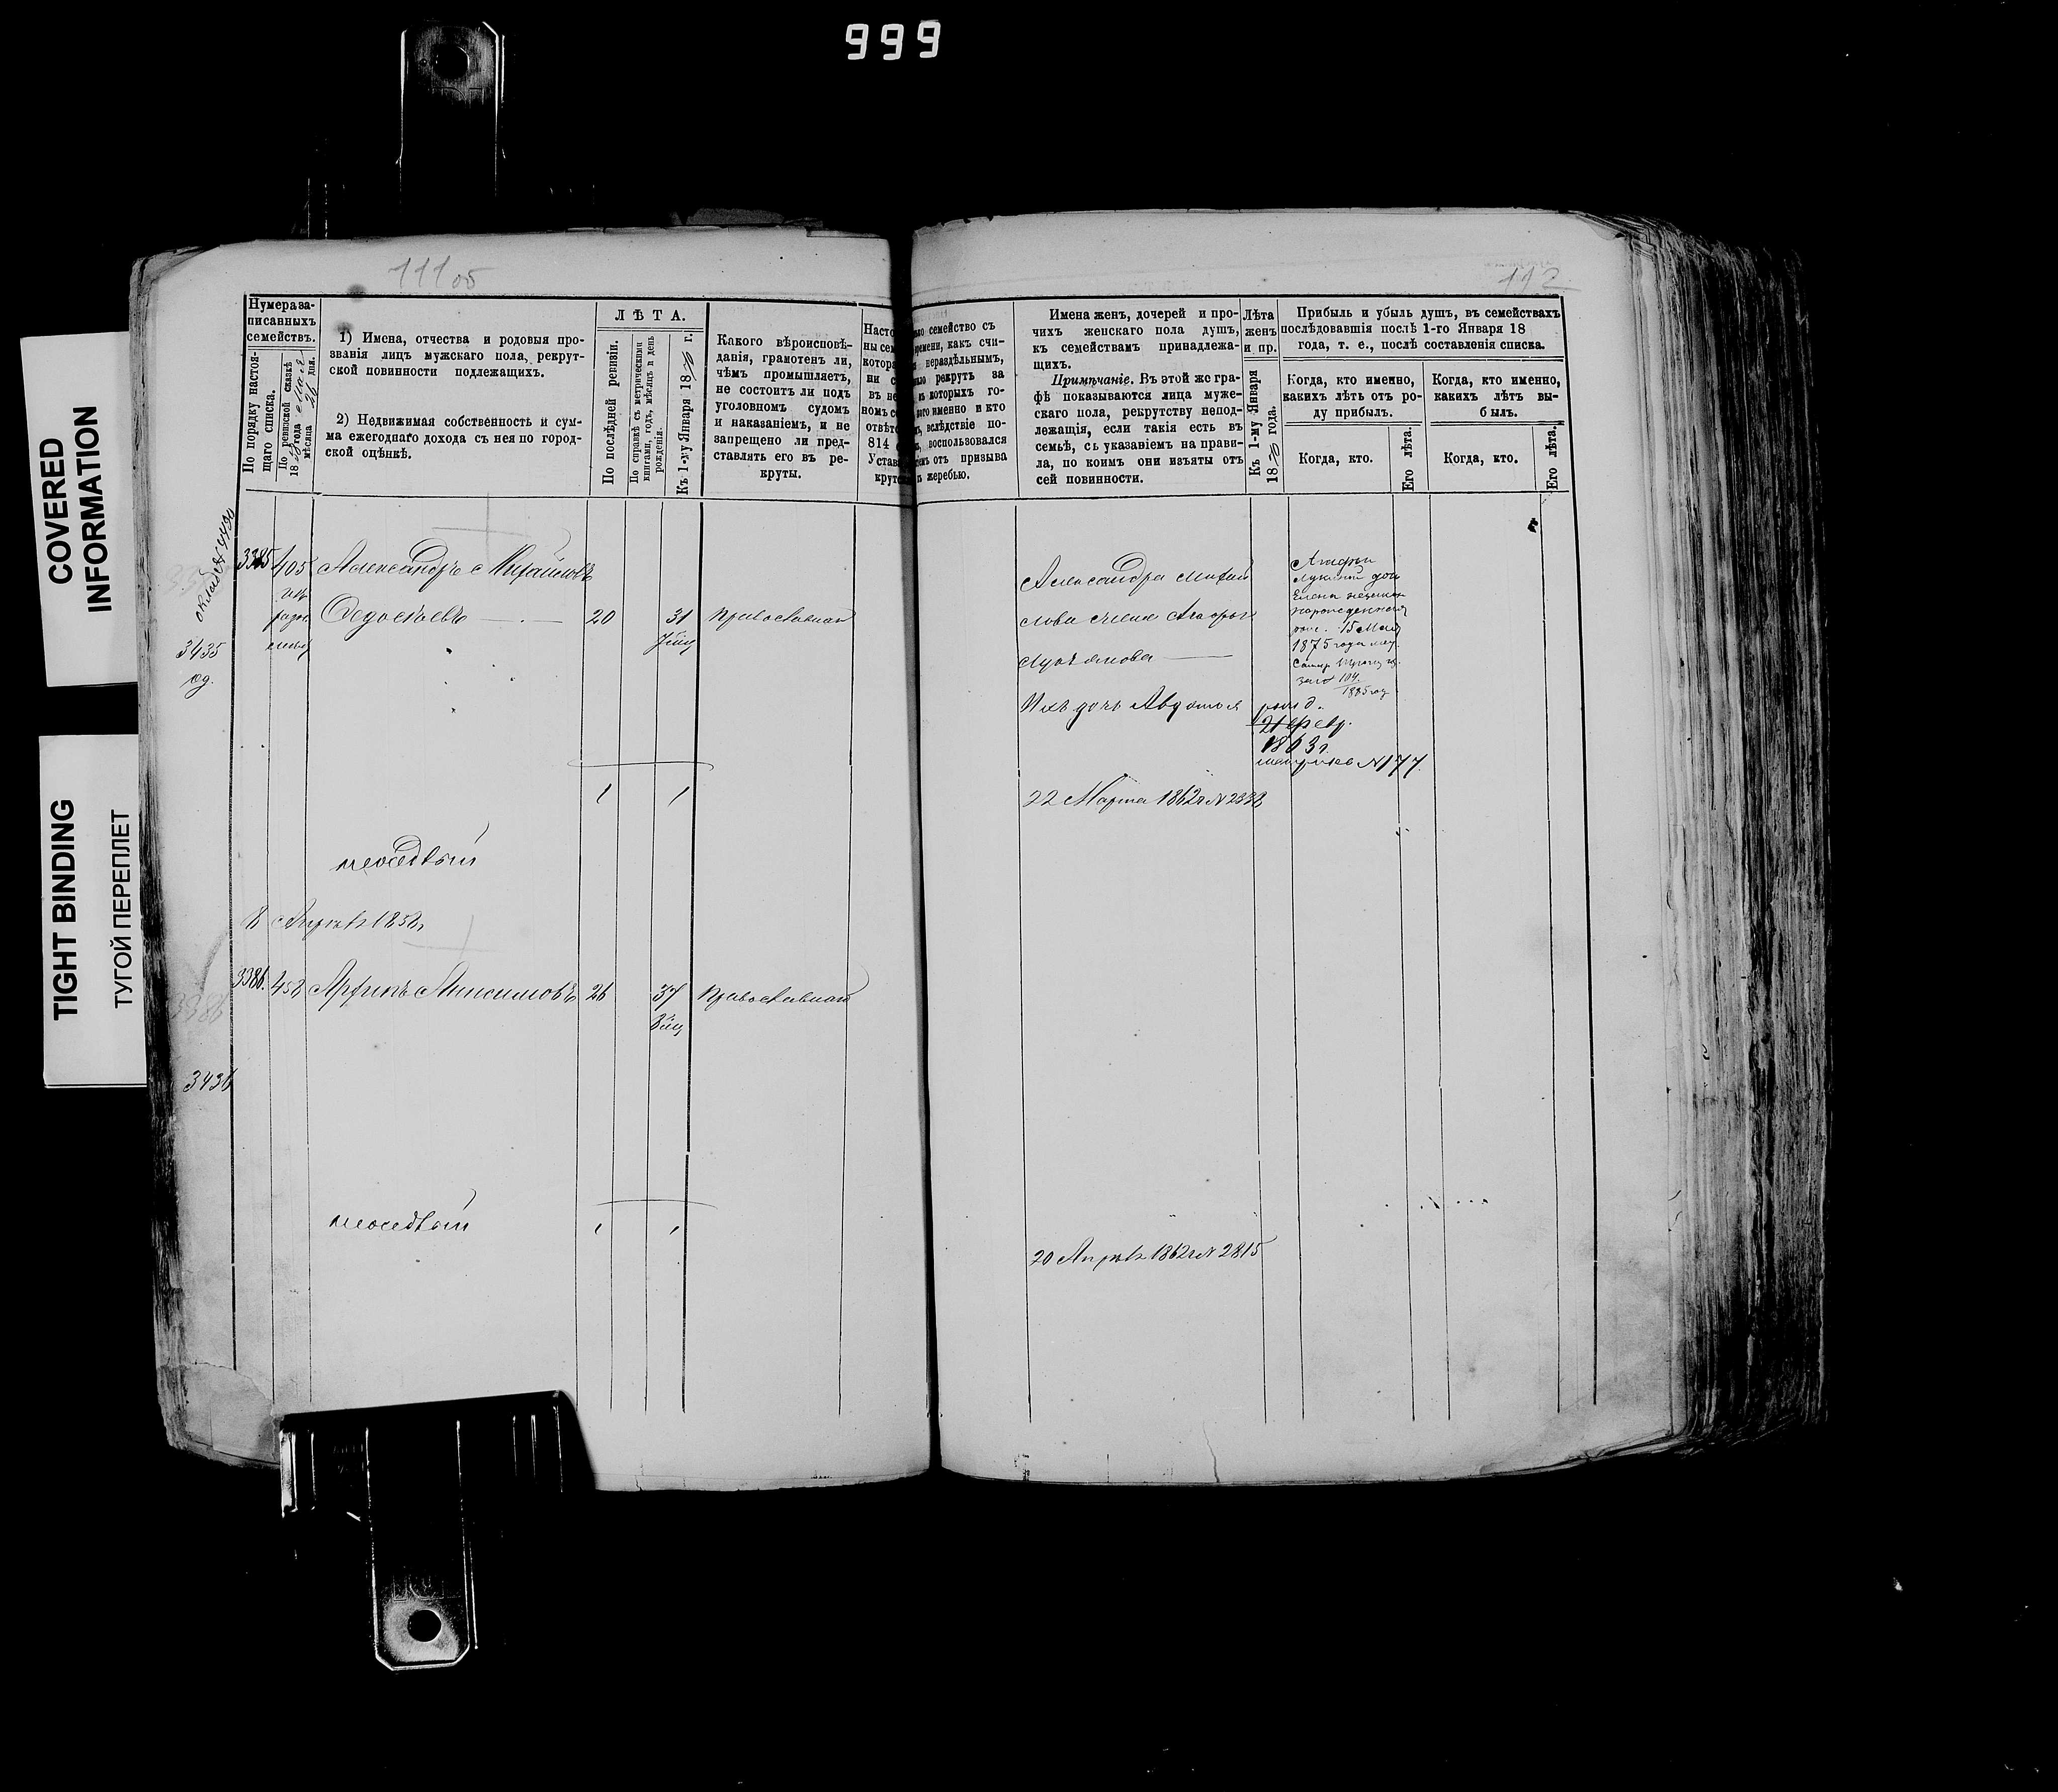 999
COVERED
INFORMATION
TIGHT BINDING
ТУГОЙ ПЕРЕПЛЕТ
111об
112
Нумера за-
писанныхъ
семействъ.
По порядку настоя-
щаго списка.
По ревизской сказкѣ
18 года
мѣсяца 26 дня.
1) Имена, отчества и родовыя про-
званія лицъ мужскаго пола, рекрут-
ской повинности подлежащихъ.
2) Недвижимая собственность и сум-
ма ежегоднаго дохода съ нея по город-
ской оцѣнкѣ.
ЛѢТА.
По послѣдней ревизіи.
По справкѣ съ метрическими
книгами, годъ, мѣсяцъ и день
рожденія.
Къ 1-му Января 1870 г.
Какого вѣроисповѣ-
данія, грамотенъ ли,
чѣмъ промышляетъ,
не состоитъ ли подъ
уголовномъ судомъ
и наказаніемъ, и не
запрещено ли пред-
ставлять его въ ре-
круты.
Насто
ны сем
котора
ни с
въ не
номъ со
отвѣтс
814
Устав
крутс
семейство съ
времени, какъ счи-
нераздѣльнымъ,
рекрутъ за
которыхъ го-
именно и кто
вслѣдствіе по-
воспользовался
отъ призыва
жеребью.
Имена женъ, дочерей и про-
чихъ женскаго пола душъ,
къ семействамъ принадлежа-
щихъ.
Примѣчаніе. Въ этой же гра-
фѣ показываются лица муже-
скаго пола, рекрутству непод-
лежащія, если такія есть въ
семьѣ, съ указаніемъ на прави-
ла, по коимъ они изъяты отъ
сей повинности.
Лѣта
женъ
и пр.
Къ 1-му Января
1870 года.
Прибыль и убыль душъ, въ семействахъ
послѣдовавшія послѣ 1-го Января 18
года, т. е., послѣ составленія списка.
Когда, кто именно,
каких лѣтъ отъ ро-
ду прибылъ.
Когда, кто именно,
какихъ лѣтъ вы-
былъ.
Когда, кто.
Его лѣта.
Когда, кто.
Его лѣта.
3385 405 Александръ Михайловъ
Федосѣевъ 20 31 православнаго
3435
Александра Михай
лова жена Агафья
Лукьянова
Ихъ дочь Авдотья
род.
21 Февр.
1863 г.
метрика N 177
Агафьи
Елена
15 Мая
1875 года
104
1885 год
1 1
22 Марта 1862 г N 2332
неосѣдлый
8 Апрѣля 1858 г
3386. 458 Максимовъ 26 37 православнаго
3436
неосѣдлый 1 1
20 Апрѣля 1862 г N 2815